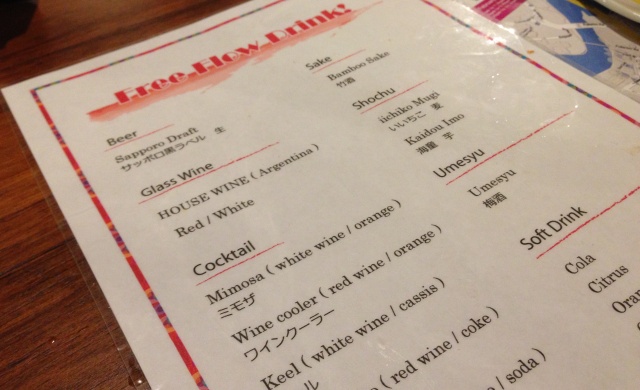 Free Flow Drink!
Beer
Sapporo Draft
サッポロ黒ラベル 生
Glass Wine
HOUSE WINE ( Argentina )
Red / White
Cocktail
Mimosa ( white wine / orange )
ミモザ
Wine cooler ( red wine / orange )
ワインクーラー
Keel ( white wine / cassis )
ル
( red wine / coke )
/ soda )
Sake
Bamboo Sake
竹酒
Shochu
iichiko Mugi
いいちこ 麦
Kaidou Imo
海童 芋
Umesyu
Umesyu
梅酒
Soft Drink
Cola
Citrus